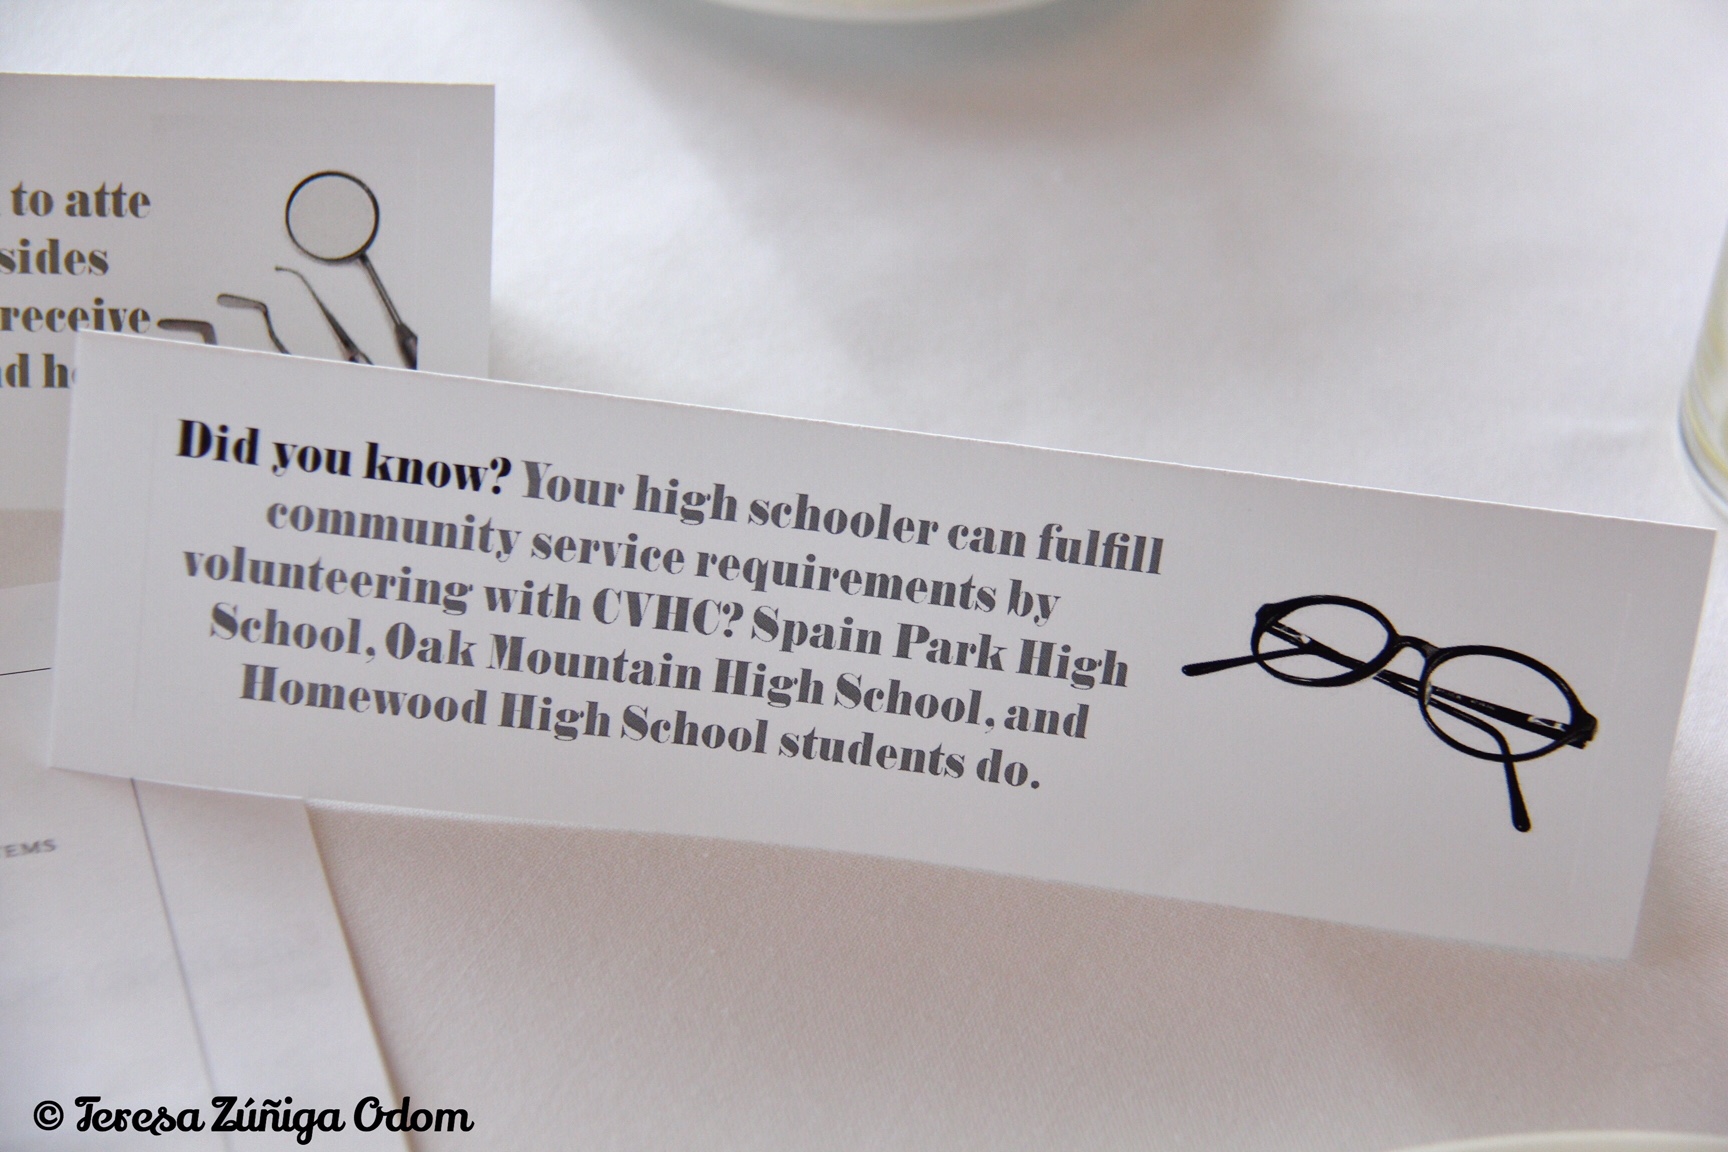 to atte
sides
receive
Did you know? Your high schooler can fulfill
community service requirements by
volunteering with CVHC? Spain Park High
School, Oak Mountain High School, and
Homewood High School students do.
© Teresa Zúñiga Odom